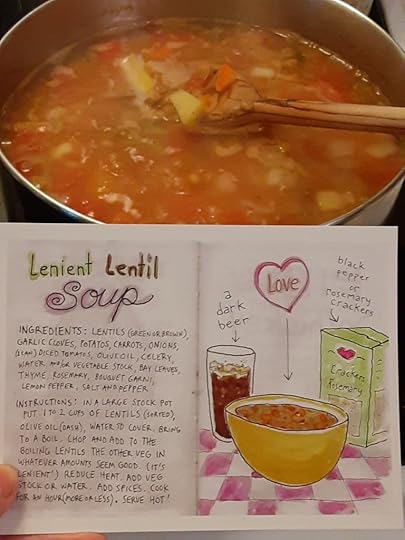 Lenient Lentil
Soup
INGREDIENTS: LENTILS (GREEN OR BROWN),
GARLIC CLOVES, POTATOS, CARROTS, ONIONS,
(1 CAN) DICED TOMATOS, OLIVE OIL, CELERY,
WATER and/or VEGETABLE STOCK, BAY LEAVES,
THYME, ROSEMARY, BOUQUET GARNI,
LEMON PEPPER, SALT AND PEPPER
INSTRUCTIONS: IN A LARGE STOCK POT
PUT 1 TO 2 CUPS OF LENTILS (SORTED),
OLIVE OIL (DASH), WATER TO COVER. BRING
TO A BOIL. CHOP AND ADD TO THE
BOILING LENTILS THE OTHER VEG IN
WHATEVER AMOUNTS SEEM GOOD. (IT'S
LENIENT!) REDUCE HEAT. ADD VEG
STOCK OR WATER. ADD SPICES. COOK
FOR AN HOUR (MORE OR LESS). SERVE HOT!
a
dark
beer
Love
black
pepper
or
rosemary
crackers
Crackers
Rosemary